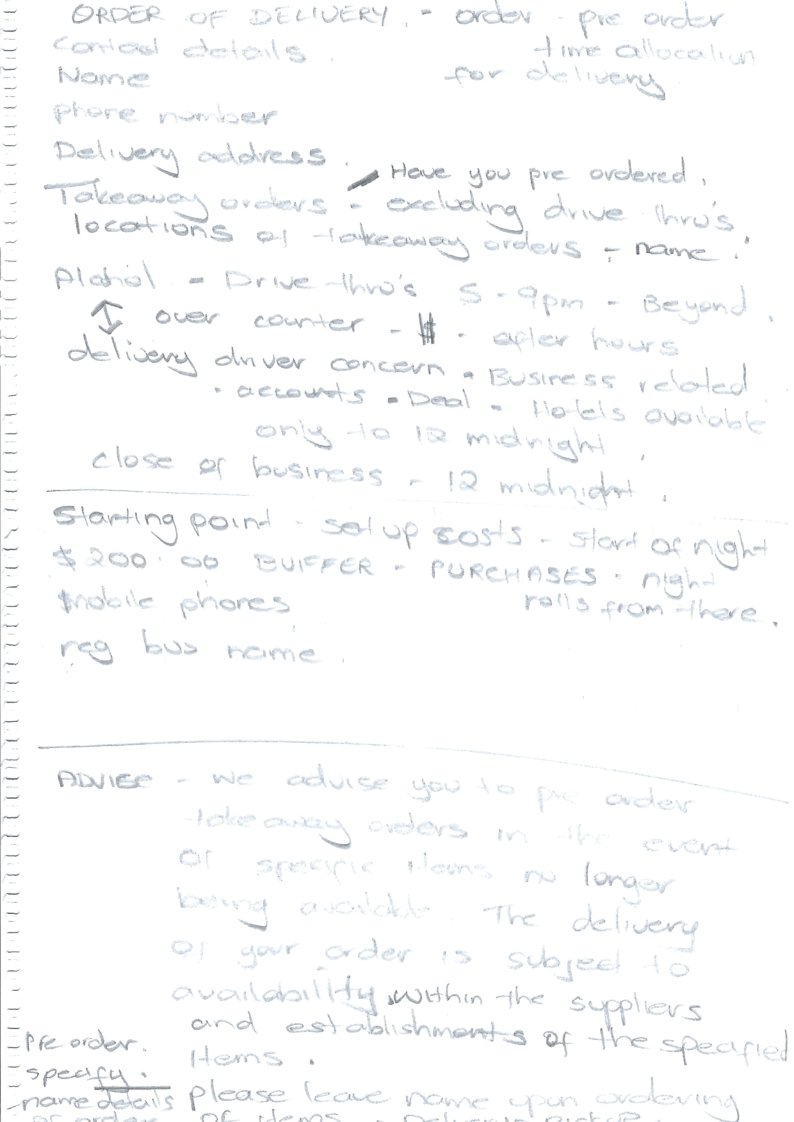 ORDER OF DELIVERY. - order - pre order
Contact details. time allocation
Name for delivery
phone number
Delivery address.
Have you pre ordered.
Takeaway orders - excluding drive thru's
locations of takeaway orders - name.
Alahol - Drive-thro's 5 - 9pm - Beyond.
over counter - $ - after hours
delivery driver concern - Business related
- accounts - Deal - Hotels available
only to 12 midnight,
close of business - 12 midnight.
Starting point - set up costs - start of night
$200.00 BUIFFER - PURCHASES - night
mobile phones rolls from there.
reg bus name.
ADVISE - We advise you to pre order
takeaway orders in the event
of specific items no longer
being available. The delivery
of your order is subject to
availability, within the suppliers
and establishments of the specified
items.
Pre order.
specify.
name details please leave name upon ordering
or order of items - Deliverin pickup.